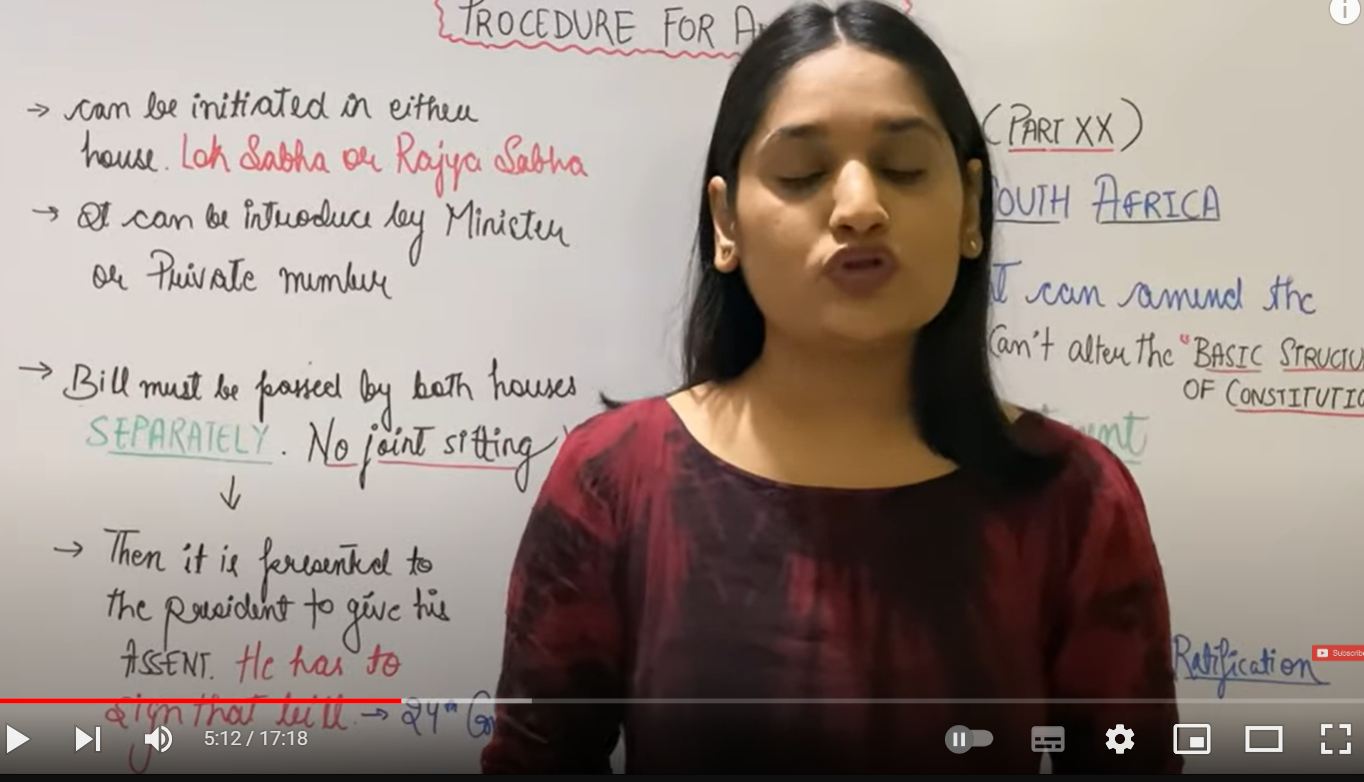 PROCEDURE FOR
→ can be initiated in either
house. Lok Sabha or Rajya Sabha
→ It can be introduce by Minister
or Private member
→ Bill must be passed by both houses
SEPARATELY. No joint sitting
↓
→ Then it is presented to
the president to give his
ASSENT. He has to
sign that bill. → 24th
(PART XX)
OUTH AFRICA
can amend the
Can't alter the "BASIC STRUCTU
OF CONSTITUTIO
Ratification
Subscribe
5:12 / 17:18